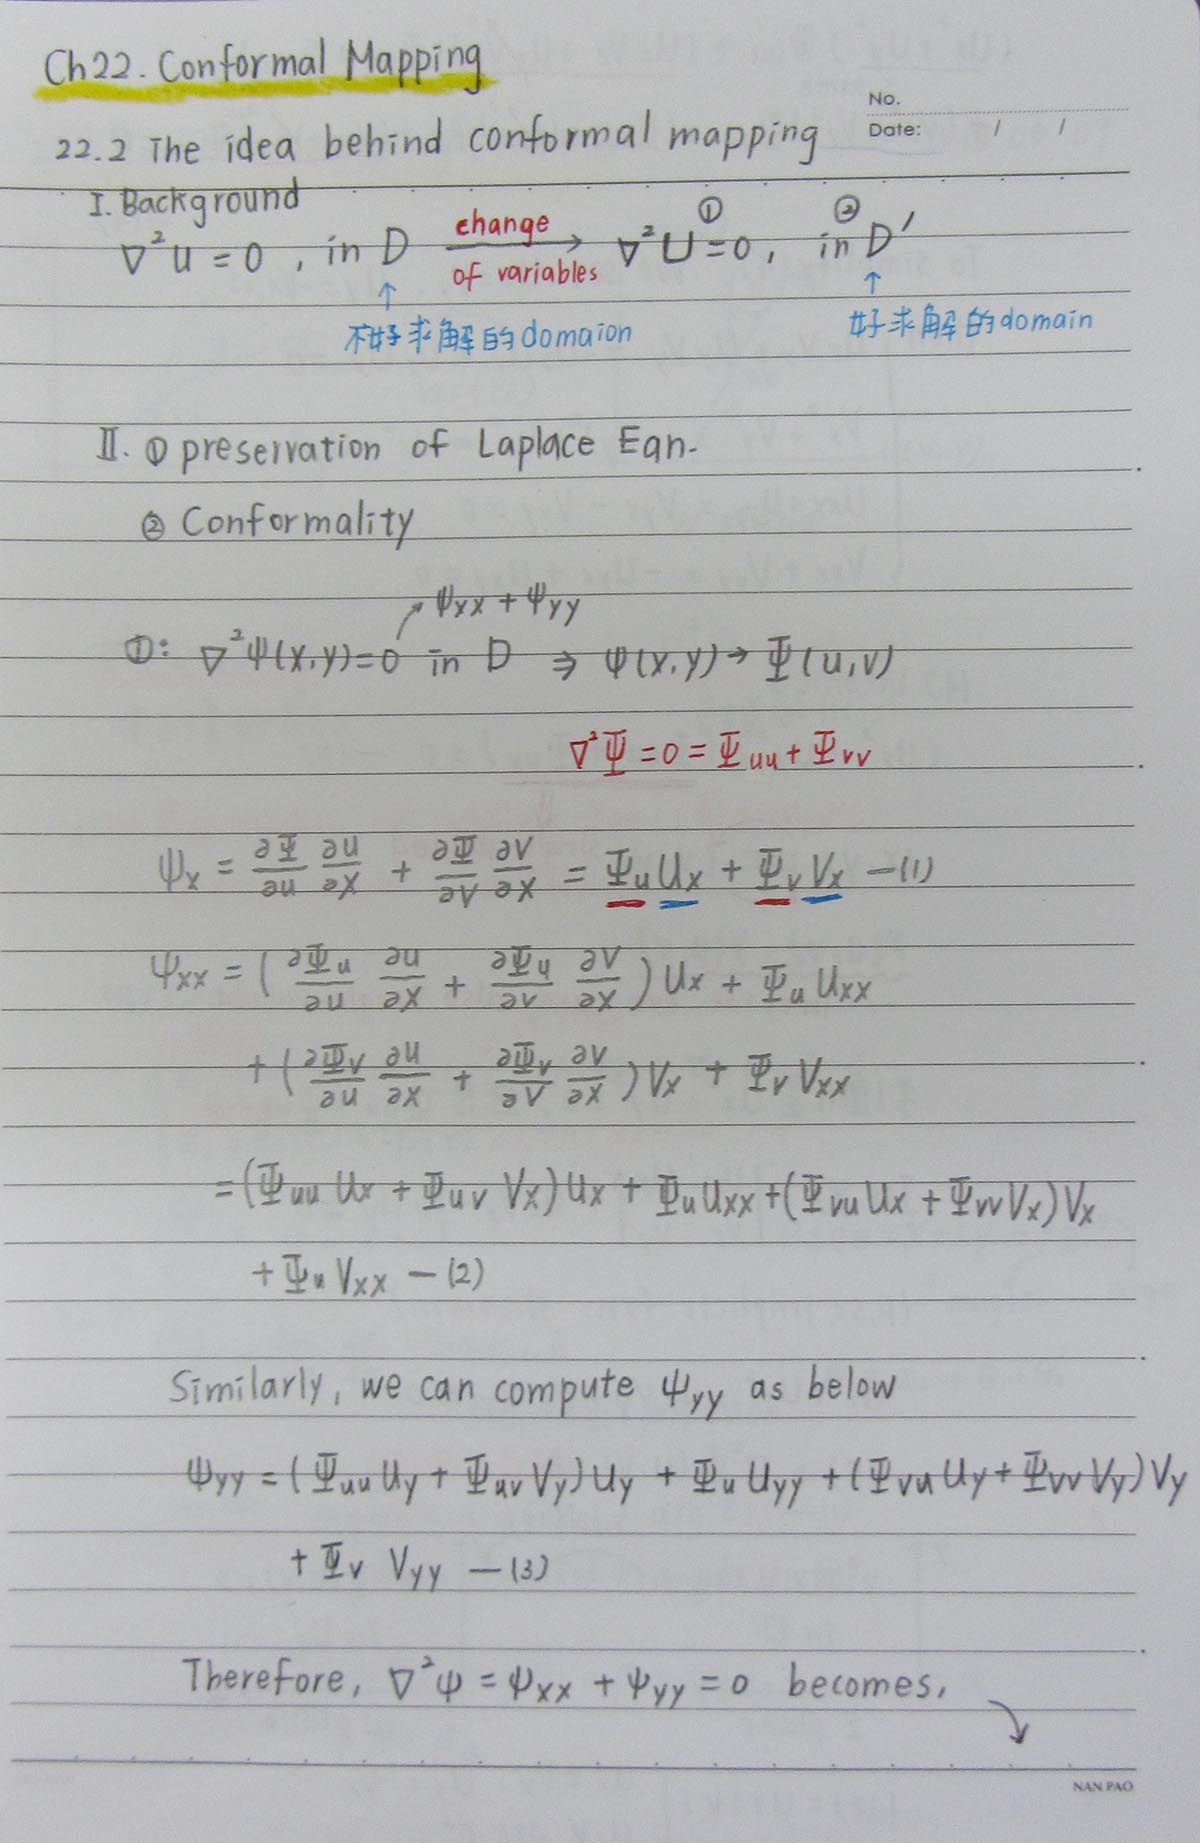 Ch22. Conformal Mapping
No.
Date: / /
22.2 The idea behind conformal mapping
I. Background
∇²u = 0 , in D change of variables → ∇²U = 0 , in D′
① ②
↑ ↑
不好求解的domaion 好求解的domain
II. ① preservation of Laplace Eqn.
② Conformality
↗ ψxx + ψyy
①: ∇²ψ(x,y)=0 in D ⇒ ψ(x,y) → Ψ(u,v)
∇²Ψ = 0 = Ψuu + Ψvv
ψx = ∂Ψ/∂u ∂u/∂x + ∂Ψ/∂v ∂v/∂x = Ψu Ux + Ψv Vx —(1)
ψxx = ( ∂Ψu/∂u ∂u/∂x + ∂Ψu/∂v ∂v/∂x ) Ux + Ψu Uxx
+ ( ∂Ψv/∂u ∂u/∂x + ∂Ψv/∂v ∂v/∂x ) Vx + Ψv Vxx
= (Ψuu Ux + Ψuv Vx) Ux + Ψu Uxx + (Ψvu Ux + Ψvv Vx) Vx
+ Ψu Vxx — (2)
Similarly, we can compute ψyy as below
ψyy = (Ψuu Uy + Ψuv Vy) Uy + Ψu Uyy + (Ψvu Uy + Ψvv Vy) Vy
+ Ψv Vyy — (3)
Therefore, ∇²ψ = ψxx + ψyy = 0 becomes,
NAN PAO